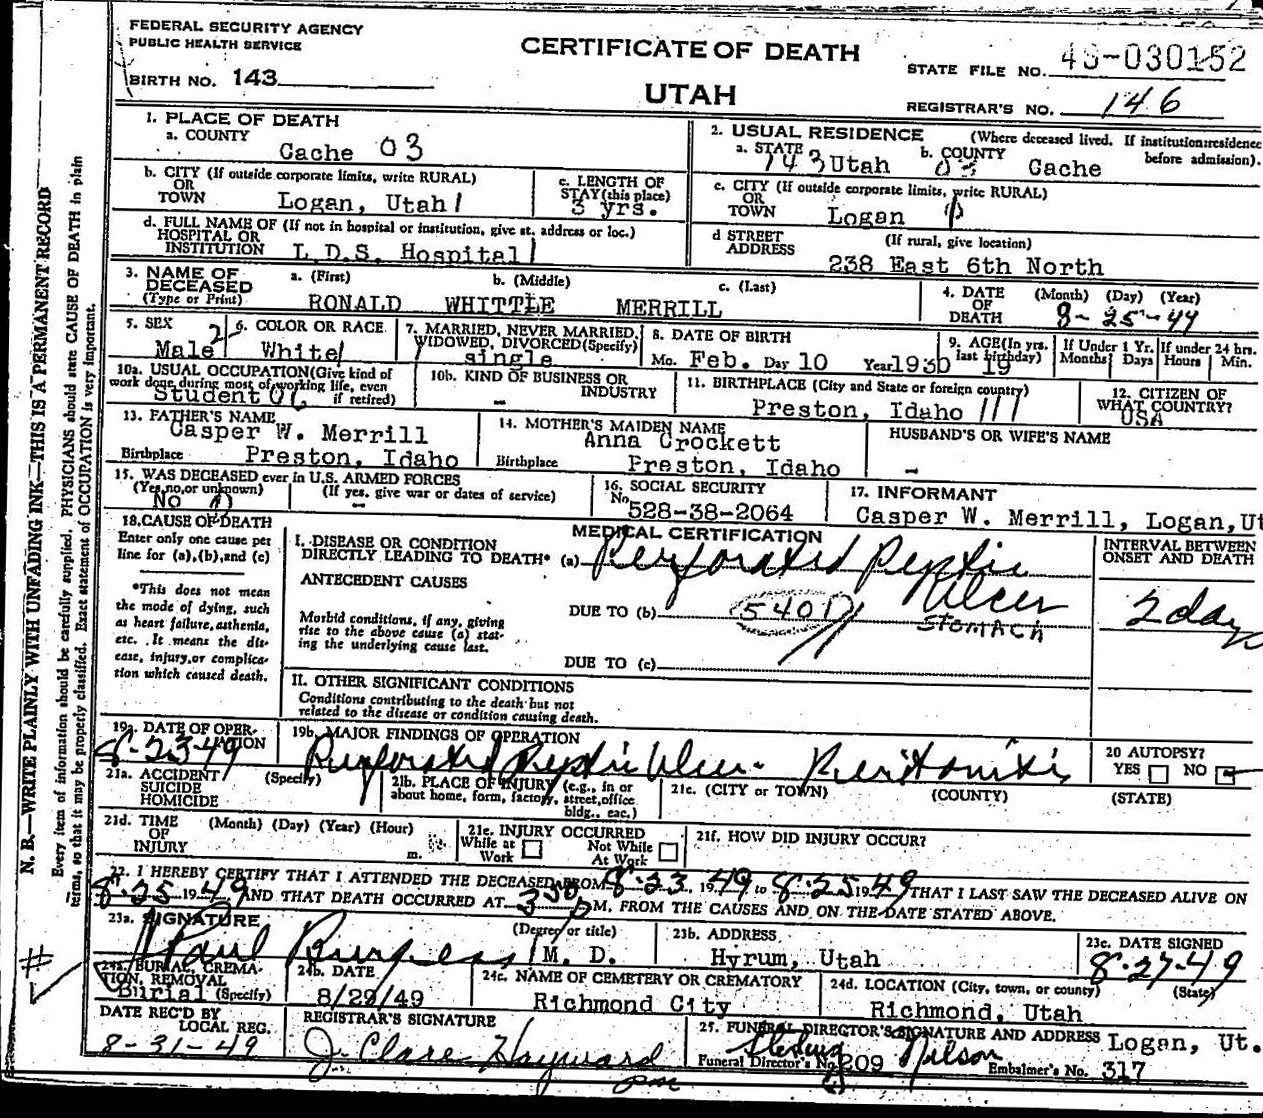 FEDERAL SECURITY AGENCY
PUBLIC HEALTH SERVICE
BIRTH NO. 143
CERTIFICATE OF DEATH
UTAH
STATE FILE NO. 49-030152
REGISTRAR'S NO. 146
N. B.—WRITE PLAINLY WITH UNFADING INK—THIS IS A PERMANENT RECORD
Every item of information should be carefully supplied. PHYSICIANS should state CAUSE OF DEATH in plain
terms, so that it may be properly classified. Exact statement of OCCUPATION is very important.
1. PLACE OF DEATH
a. COUNTY
Cache 03
2. USUAL RESIDENCE (Where deceased lived. If institution:residence before admission).
a. STATE 143 Utah b. COUNTY 03 Cache
b. CITY (If outside corporate limits, write RURAL)
OR
TOWN Logan, Utah
c. LENGTH OF
STAY (this place)
3 yrs.
c. CITY (If outside corporate limits, write RURAL)
OR
TOWN Logan
d. FULL NAME OF (If not in hospital or institution, give st. address or loc.)
HOSPITAL OR
INSTITUTION L.D.S. Hospital
d STREET
ADDRESS (If rural, give location)
238 East 6th North
3. NAME OF
DECEASED
(Type or Print)
a. (First) b. (Middle) c. (Last)
RONALD WHITTLE MERRILL
4. DATE
OF
DEATH
(Month) (Day) (Year)
8-25-49
5. SEX 2
Male
6. COLOR OR RACE
White
7. MARRIED, NEVER MARRIED,
WIDOWED, DIVORCED (Specify)
single
8. DATE OF BIRTH
Mo. Feb. Day 10 Year 1930
9. AGE (In yrs.
last birthday)
19
If Under 1 Yr.
Months Days
If under 24 hrs.
Hours Min.
10a. USUAL OCCUPATION (Give kind of
work done during most of working life, even
if retired)
Student
10b. KIND OF BUSINESS OR
INDUSTRY
-
11. BIRTHPLACE (City and State or foreign country)
Preston, Idaho
12. CITIZEN OF
WHAT COUNTRY?
USA
13. FATHER'S NAME
Casper W. Merrill
Birthplace Preston, Idaho
14. MOTHER'S MAIDEN NAME
Anna Crockett
Birthplace Preston, Idaho
HUSBAND'S OR WIFE'S NAME
-
15. WAS DECEASED ever in U.S. ARMED FORCES
(Yes,no,or unknown) (If yes, give war or dates of service)
No -
16. SOCIAL SECURITY
No. 528-38-2064
17. INFORMANT
Casper W. Merrill, Logan, Ut
18. CAUSE OF DEATH
Enter only one cause per
line for (a), (b), and (c)
*This does not mean
the mode of dying, such
as heart failure, asthenia,
etc. It means the dis-
ease, injury, or complica-
tion which caused death.
MEDICAL CERTIFICATION
I. DISEASE OR CONDITION
DIRECTLY LEADING TO DEATH* (a) Perforated Peptic
Ulcer
STOMACH
ANTECEDENT CAUSES
Morbid conditions, if any, giving
rise to the above cause (a) stat-
ing the underlying cause last.
DUE TO (b) 5401
DUE TO (c)
INTERVAL BETWEEN
ONSET AND DEATH
2 day
II. OTHER SIGNIFICANT CONDITIONS
Conditions contributing to the death but not
related to the disease or condition causing death.
19a. DATE OF OPER-
ATION
8-23-49
19b. MAJOR FINDINGS OF OPERATION
Perforated Peptic Ulcer - Peritonitis
20 AUTOPSY?
YES NO
21a. ACCIDENT (Specify)
SUICIDE
HOMICIDE
21b. PLACE OF INJURY (e.g., in or
about home, form, factory, street, office
bldg., eac.)
21c. (CITY or TOWN) (COUNTY) (STATE)
21d. TIME (Month) (Day) (Year) (Hour)
OF
INJURY m.
21e. INJURY OCCURRED
While at Work Not While At Work
21f. HOW DID INJURY OCCUR?
22. I HEREBY CERTIFY THAT I ATTENDED THE DECEASED FROM 8-23, 1949 to 8-25 1949 THAT I LAST SAW THE DECEASED ALIVE ON
8-25 1949 AND THAT DEATH OCCURRED AT 3 50 P M, FROM THE CAUSES AND ON THE DATE STATED ABOVE.
23a. SIGNATURE (Degree or title)
Paul Burgess M. D.
23b. ADDRESS
Hyrum, Utah
23c. DATE SIGNED
8-27-49
24a. BURIAL, CREMA-
TION, REMOVAL
Burial (Specify)
24b. DATE
8/29/49
24c. NAME OF CEMETERY OR CREMATORY
Richmond City
24d. LOCATION (City, town, or county) (State)
Richmond, Utah
DATE REC'D BY
LOCAL REG.
8-31-49
REGISTRAR'S SIGNATURE
J. Clare Hayward
25. FUNERAL DIRECTOR'S SIGNATURE AND ADDRESS Logan, Ut.
Sterling Nilson
Funeral Director's No. 209 Embalmer's No. 317